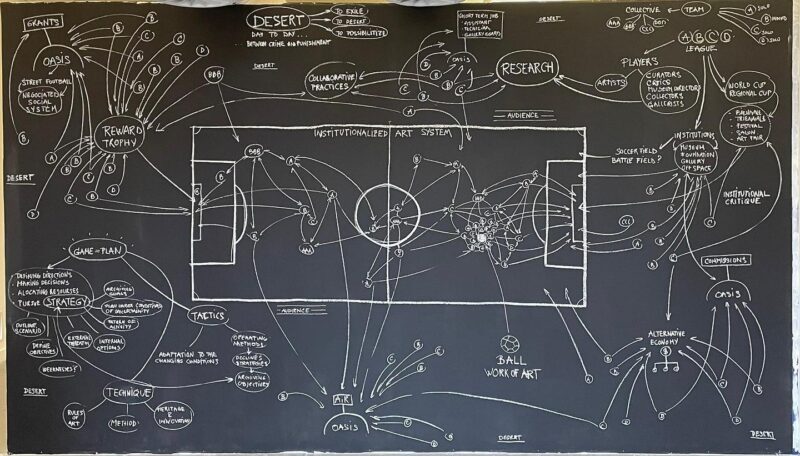 GRANTS
OASIS
STREET FOOTBALL
NEGOCIATED
SOCIAL
SYSTEM
REWARD
TROPHY
DESERT
BBB
DESERT
DAY TO DAY...
BETWEEN CRIME AND PUNISHMENT
TO EXILE
TO DESERT
TO POSSIBILITIZE
DESERT
COLLABORATIVE
PRACTICES
SHORT TERM JOB
ASSISTANT
TECHNICIAN
GALLERY GUARD
OASIS
DESERT
RESEARCH
COLLECTIVE
TEAM
AAA
BBB
CCC
DDD
A SOLO
C SOLO
D SOLO
A B C D
LEAGUE
PLAYERS
ARTISTS
CURATORS
CRITICS
MUSEUM DIRECTORS
COLLECTORS
GALLERISTS
WORLD CUP
REGIONAL CUP
BIENNIAL
TRIENNIALS
FESTIVAL
SALON
ART FAIR
AUDIENCE
INSTITUTIONALIZED ART SYSTEM
SOCCER FIELD?
BATTLE FIELD?
INSTITUTIONS
MUSEUM
FOUNDATION
GALLERY
OFF SPACE
INSTITUTIONAL
CRITIQUE
BBB
AAA
CCC
GAME-PLAN
DEFINING DIRECTIONS
MAKING DECISIONS
ALOCATING RESOURSES
PURSUE STRATEGY
ARCHIVING
GOALS
PLAN UNDER CONDITIONS
OF UNCERTAINITY
PATTERN OF
ACTIVITY
OUTCOME
SCENARIO
DEFINE
OBJECTIVES
EXTERNAL
THREATEN
INTERNAL
OPTIONS
WEAKNESSES?
DESERT
TACTICS
ADAPTATION TO THE
CHANGING CONDITIONS
OPERATING
METHODS
ARCHIVING
OBJECTIVE
TECHNIQUE
RULES
OF
ART
METHOD
HERITAGE
&
INNOVATION
AUDIENCE
AIR
OASIS
BALL
WORK OF ART
DESERT
COMMISSIONS
OASIS
ALTERNATIVE
ECONOMY
DESERT